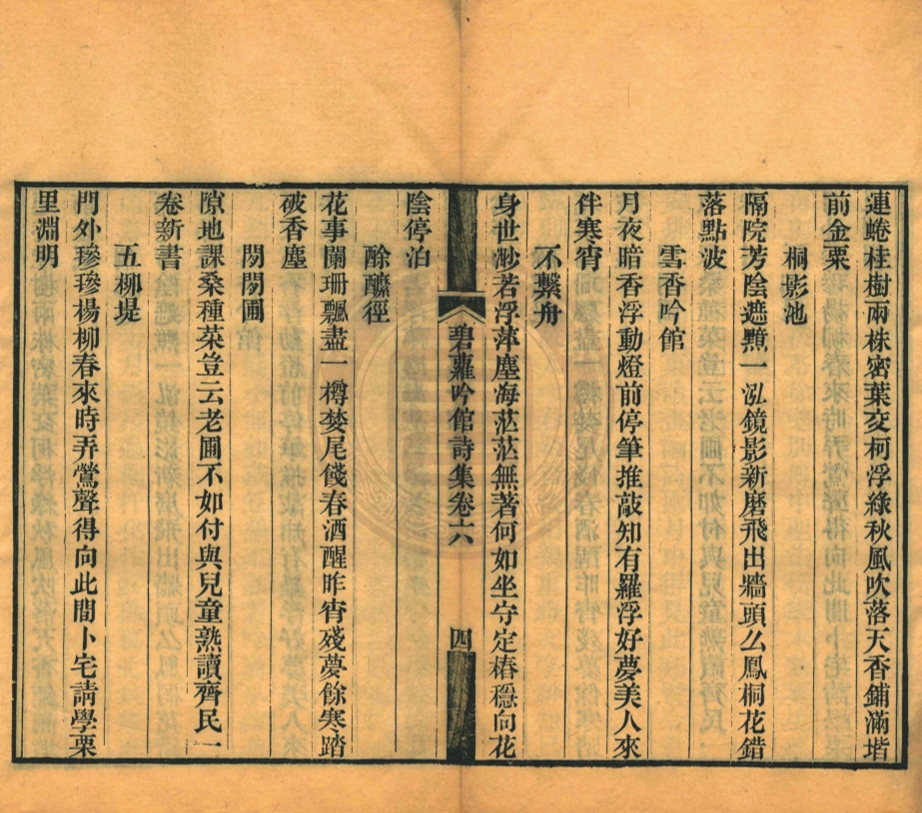 連蜷桂樹兩株密葉交柯浮綠秋風吹落天香鋪滿堦
前金粟
桐影池
隔院芳陰遮黰一泓鏡影新磨飛出牆頭么鳳桐花錯
落點波
雪香吟館
月夜暗香浮動燈前停筆推敲知有羅浮好夢美人來
伴寒宵
不繫舟
身世渺若浮萍塵海茫茫無著何如坐守定樁穩向花
碧蘿吟館詩集卷六
四
陰停泊
酴醾徑
花事闌珊飄盡一樽婪尾餞春酒醒昨宵殘夢餘寒踏
破香塵
閑閑圃
隙地課桑種菜豈云老圃不如付與兒童熟讀齊民一
卷新書
五柳堤
門外毿毿楊柳春來時弄鶯聲得向此間卜宅請學栗
里淵明